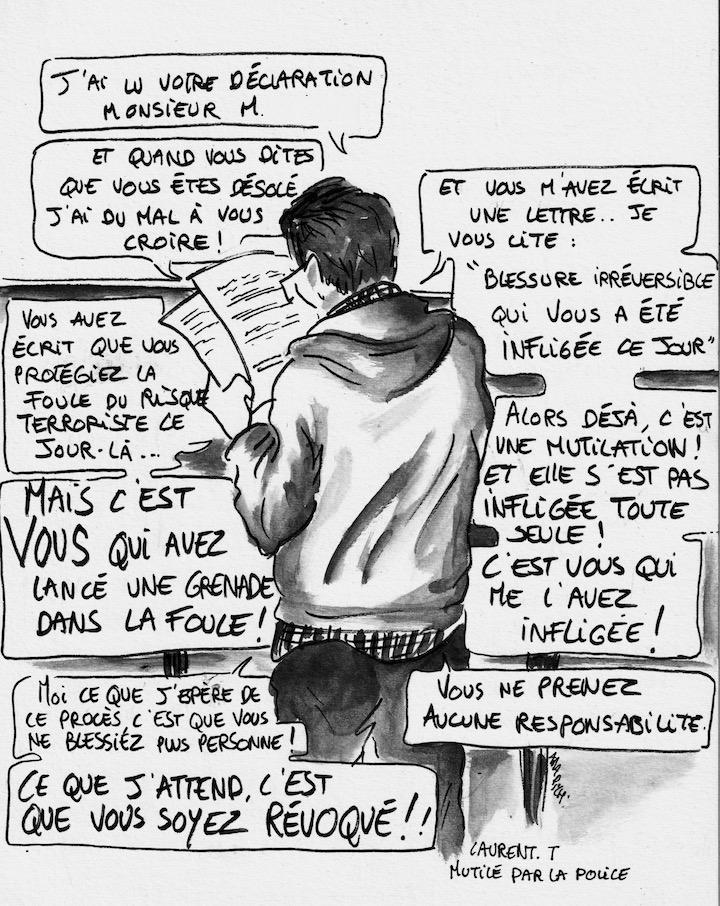 J'AI LU VOTRE DÉCLARATION
MONSIEUR M.
ET QUAND VOUS DITES
QUE VOUS ÊTES DÉSOLÉ
J'AI DU MAL À VOUS
CROIRE !
ET VOUS M'AVEZ ÉCRIT
UNE LETTRE.. JE
VOUS CITE :
"BLESSURE IRRÉVERSIBLE
QUI VOUS A ÉTÉ
INFLIGÉE CE JOUR"
VOUS AVEZ
ÉCRIT QUE VOUS
PROTÉGIEZ LA
FOULE DU RISQUE
TERRORISTE CE
JOUR-LÀ...
ALORS DÉJÀ, C'EST
UNE MUTILATION !
ET ELLE S'EST PAS
INFLIGÉE TOUTE
SEULE !
C'EST VOUS QUI
ME L'AVEZ
INFLIGÉE !
MAIS C'EST
VOUS QUI AVEZ
LANCÉ UNE GRENADE
DANS LA FOULE !
VOUS NE PRENEZ
AUCUNE RESPONSABILITÉ.
MOI CE QUE J'EPÈRE DE
CE PROCÈS, C'EST QUE VOUS
NE BLESSIEZ PLUS PERSONNE !
CE QUE J'ATTEND, C'EST
QUE VOUS SOYEZ RÉVOQUÉ !!
LAURENT. T
MUTILÉ PAR LA POLICE